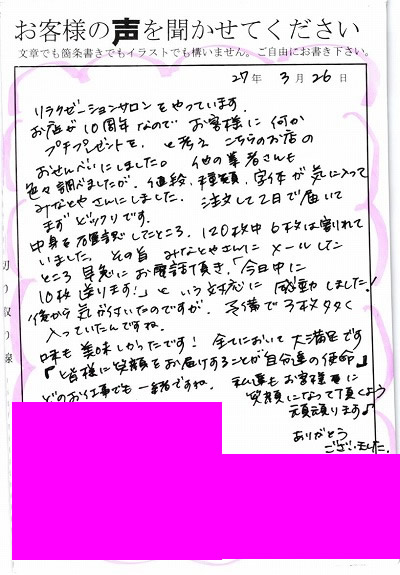 お客様の声を聞かせてください
文章でも箇条書きでもイラストでも構いません。ご自由にお書き下さい。
27年 3月 26日
リラクゼーションサロンをやっています。
お店が10周年なので お客様に何か
プチプレゼントを、と考え こちらのお店の
おせんべいにしました。 他の業者さんも
色々調べましたが、値段、種類、字体が気に入って
みなとやさんにしました。 注文して2日で届いて
まずビックリです。
中身を確認したところ、120枚中6枚は割れて
いました。その旨 みなとやさんに メールした
ところ 早急に お電話頂き、「今日中に
10枚送ります!」という対応に 感動しました!
後から気が付いたのですが、予備で3枚多く
入っていたんですね。
味も美味しかったです! 全てにおいて大満足です
『皆様に笑顔をお届けすることが自分達の使命』
どのお仕事でも 一緒ですね。 私達もお客様に
笑顔になって頂くよう
頑張ります♪
ありがとう
ございました。
切り取り線